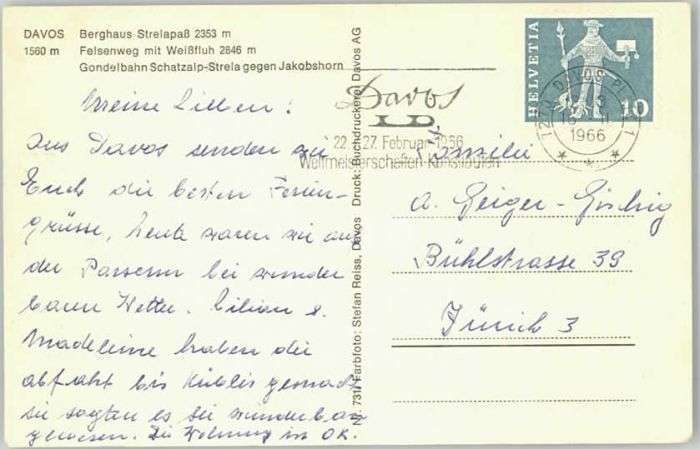 DAVOS Berghaus Strelapaß 2353 m
1560 m Felsenweg mit Weißfluh 2846 m
Gondelbahn Schatzalp-Strela gegen Jakobshorn
Meine Lieben!
Aus Davos senden wir
Euch die besten Ferien-
grüsse, heute waren wir auf
der Parsenn bei wunder
barem Wetter. Lilian &
Madeleine haben die
abfahrt bis Küblis gemacht
sie sagten es sei wunderbar
gewesen. Die Wohnung ist OK.
Nr. 731 Farbfoto: Stefan Reiss, Davos Druck: Buchdruckerei Davos AG
Davos
22. - 27. Februar 1966
Weltmeisterschaften Kunstlaufen
HELVETIA
10
DAVOS PL
1966
Familie
A. Geiger-
Bühlstrasse 39
Zürich 3